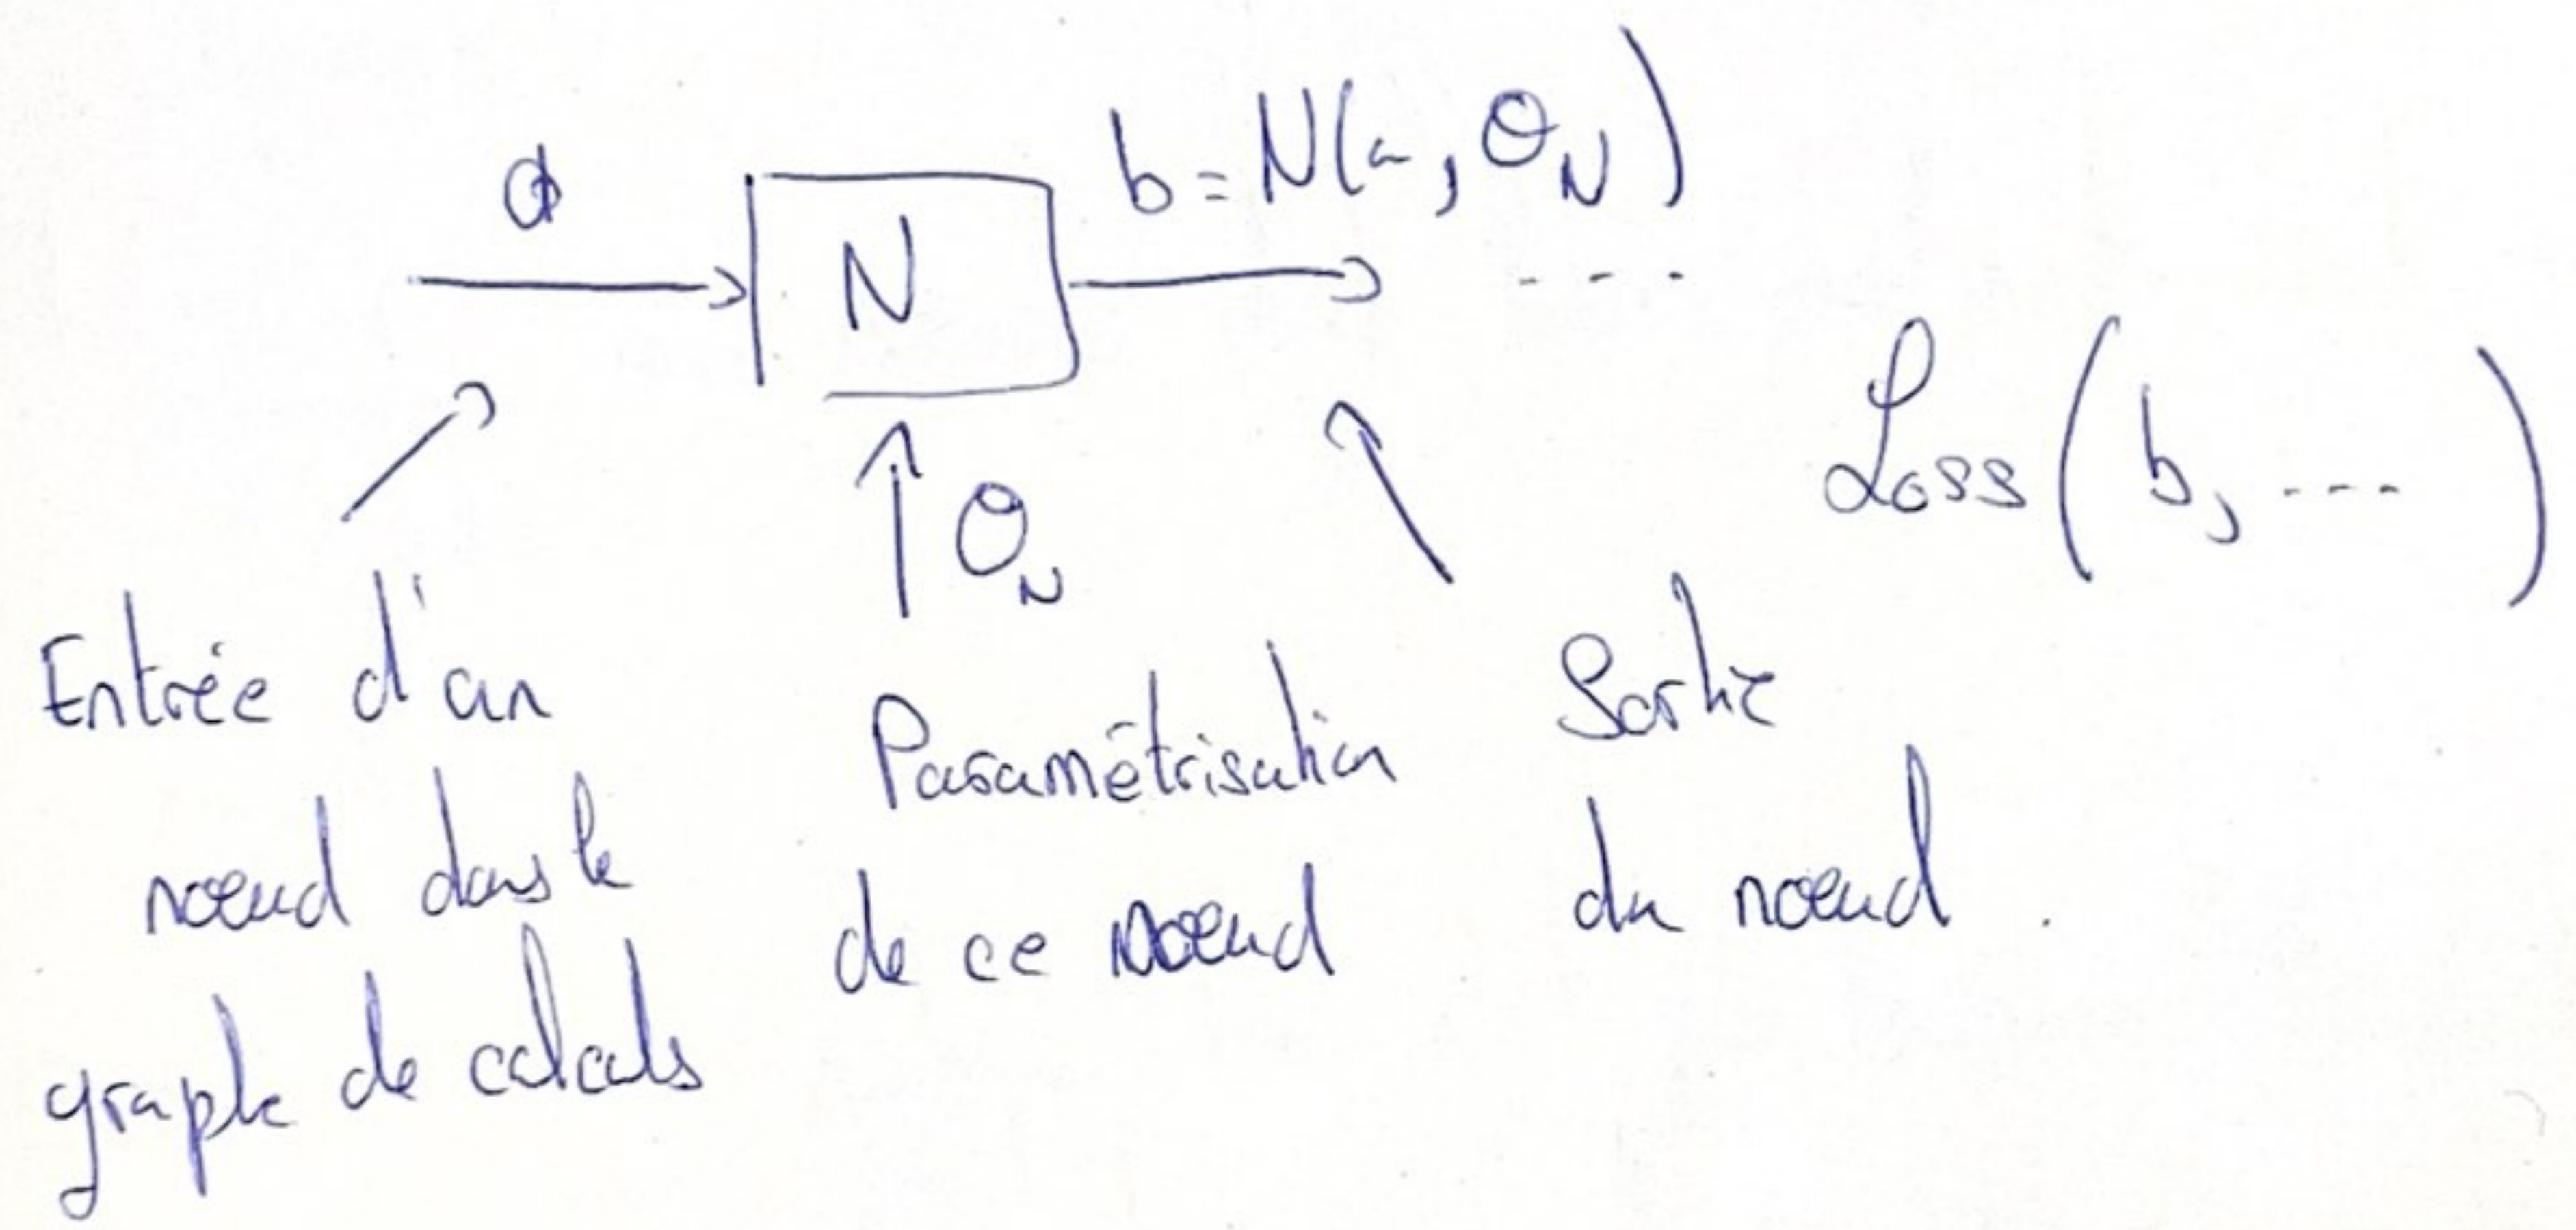 a
b = N(a, θ_N)
N
- - -
Loss(b, ---)
θ_N
Entrée d'un
nœud dans le
graphe de calculs
Paramétrisation
de ce nœud
Sortie
du nœud.